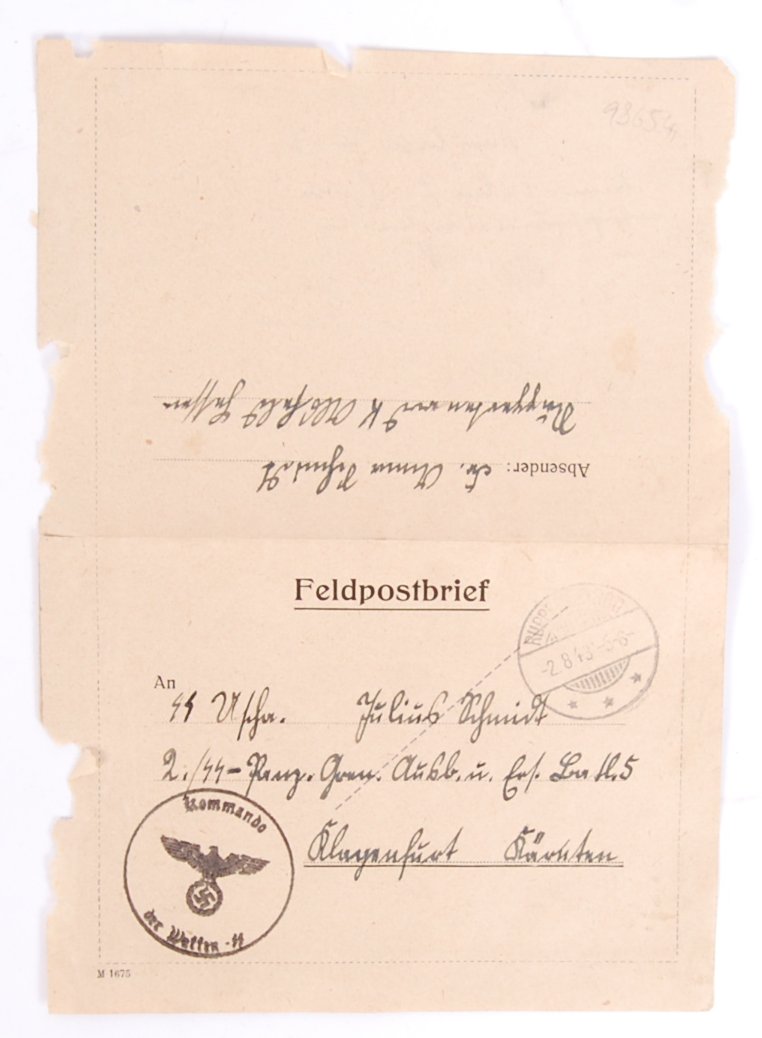 93654
Absender: Fr. Anna Schmidt
Feldpostbrief
-2.8.43-5-6-
An
SS Uscha. Julius Schmidt
2./SS-Panz. Gren. Ausb. u. Ers. Batl. 5
Klagenfurt Kärnten
Kommando
der Waffen-SS
M 1675